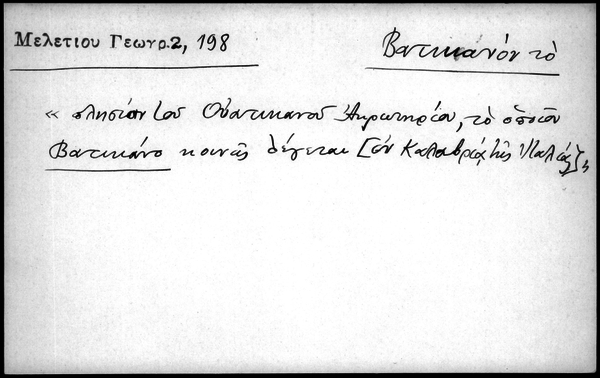 Μελετίου Γεωγρ.2, 198
Βατικανόν τὸ
« πλησίον τοῦ Οὐατικανοῦ Ἀκρωτηρίου, τὸ ὁποῖον
Βατικάνο κοινῶς λέγεται [ἐν Καλαβρίᾳ τῆς Ἰταλίας]»